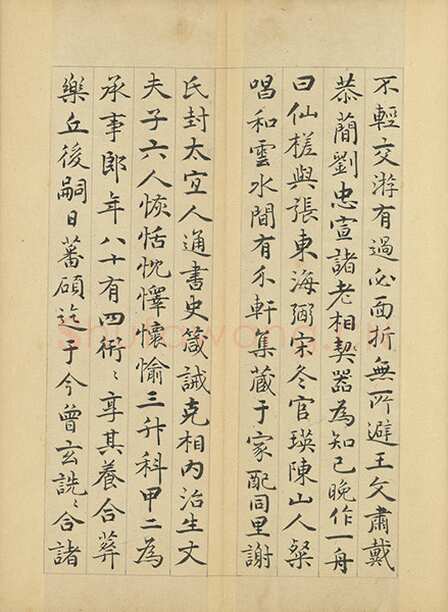 不輕交游有過必面折無所避王文肅戴
恭蕳劉忠宣諸老相契器為知己晚作一舟
曰仙槎與張東海弼宋冬官瑛陳山人粲
唱和雲水間有禾軒集蔵于家配同里謝
氏封太宜人通書史箴誡克相內治生丈
夫子六人恢恬忱懌懷愉三升科甲二為
承事郎年八十有四術〻享其養合葬
樂丘後嗣日蕃碩迨于今曾玄詵〻合諸